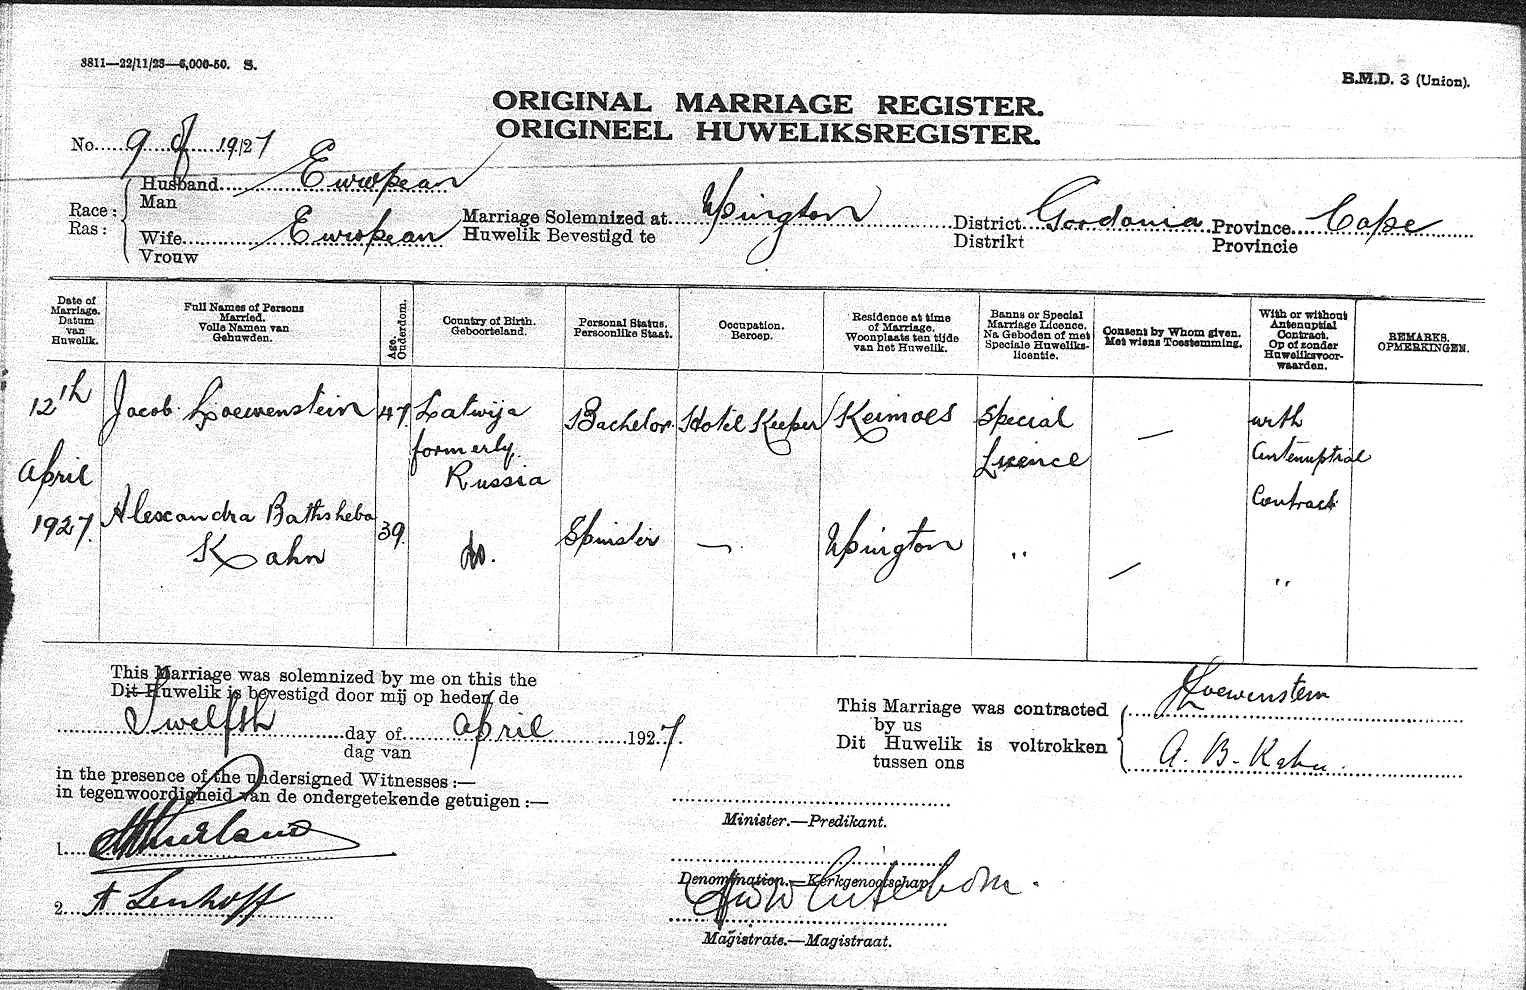 3811—22/11/23—6,000-50. S.
B.M.D. 3 (Union).
ORIGINAL MARRIAGE REGISTER.
ORIGINEEL HUWELIKSREGISTER.
No. 9 of 1927
Race: Ras:
Husband Man European
Wife Vrouw European
Marriage Solemnized at Upington District Gordonia Province Cape
Huwelik Bevestigd te Distrikt Provincie
Date of Marriage. Datum van Huwelik.
Full Names of Persons Married. Volle Namen van Gehuwden.
Age. Ouderdom.
Country of Birth. Geboorteland.
Personal Status. Persoonlike Staat.
Occupation. Beroep.
Residence at time of Marriage. Woonplaats ten tijde van het Huwelik.
Banns or Special Marriage Licence. Na Geboden of met Speciale Huweliks-licentie.
Consent by Whom given. Met wiens Toestemming.
With or without Antenuptial Contract. Op of zonder Huweliksvoor-waarden.
REMARKS. OPMERKINGEN.
12th April 1927.
Jacob Loewenstein 47 Latwija formerly Russia Bachelor Hotel Keeper Keimoes Special Licence — with Antenuptial Contract
Alexandra Bathsheba Kahn 39 do. Spinster — Upington " — "
This Marriage was solemnized by me on this the
Dit Huwelik is bevestigd door mij op heden de
Twelfth day of April 1927.
dag van
in the presence of the undersigned Witnesses:—
in tegenwoordigheid van de ondergetekende getuigen:—
1.
2. A Lenhoff
This Marriage was contracted by us
Dit Huwelik is voltrokken tussen ons
J Loewenstein
A. B. Kahn.
Minister.—Predikant.
Denomination.—Kerkgenootschap
Magistrate.—Magistraat.